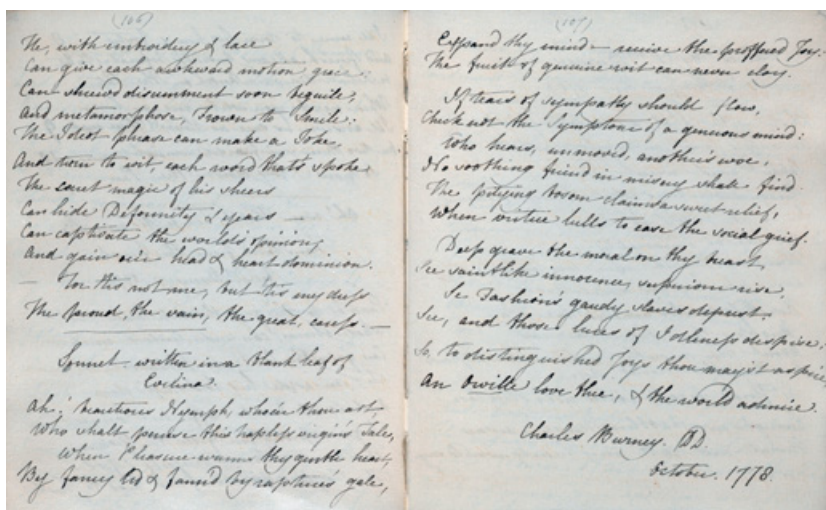 (106)
He, with embroidery & lace
Can give each awkward motion grace:
Can shrewd discernment soon beguile,
And metamorphose, Frown to Smile:
The Idiot phrase can make a Joke,
And turn to wit, each word that's spoke
The magic of his sheers
Can hide Deformity & years —
Can captivate the world's opinion,
And gain our head & heart dominion.
— For tis not me, but 'tis my dress
The proud, the vain, the great, caress. —
Sonnet written in a blank leaf of
Evelina.
Ah! beauteous Nymph, who'er thou art,
Who shalt peruse this hapless virgin's Tale,
When Pleasure warms thy gentle heart,
By fancy led & fann'd by rapture's gale,
(107)
Expand thy mind — receive the proffered Joy:
The fruit of genuine wit can never cloy.
If tears of sympathy should flow,
Check not the Symptons of a generous mind:
Who hears, unmoved, another's woe,
No soothing friend in misery shall find.
The pitying bosom claims a sweet relief,
When virtue to ease the social grief.
Deep grave the moral on thy breast,
See saintlike innocence, superior rise,
See Fashion's gaudy slaves deprest,
See, and those lures of Idleness despise;
So, to distinguished Joys thou may'st aspire,
An Orville love thee, & the world admire.
Charles Burney. DD.
October. 1778.